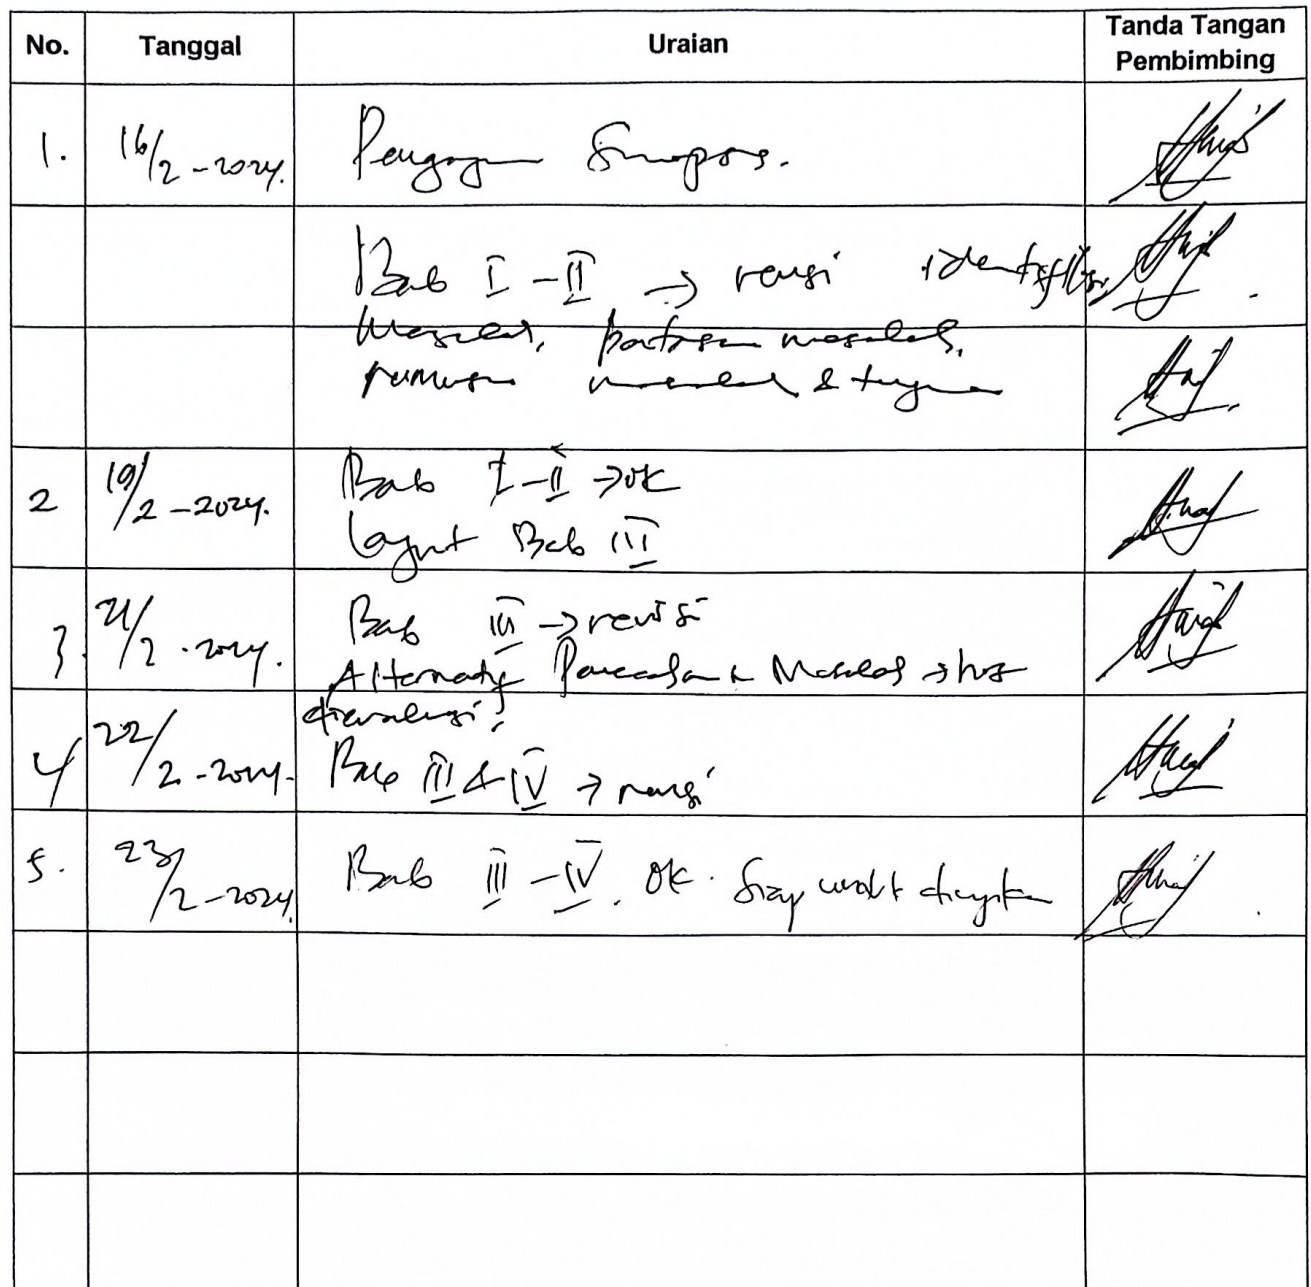 No. Tanggal Uraian Tanda Tangan
Pembimbing
1. 16/2-2024. Pengajuan Sinopsis.
Bab I-II → revisi identifikasi
Masalah, batasan masalah,
rumusan masalah & tujuan
2 19/2-2024. Bab I-II → ok
lanjut Bab III
3. 21/2.2024. Bab III → revisi
Alternatif Pemecahan Masalah →
4 22/2-2024- Bab III & IV → revisi
5. 23/2-2024. Bab III-IV. Ok. Siap untuk diujikan